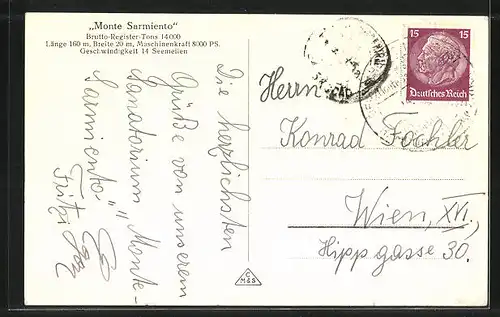 „Monte Sarmiento“
Brutto-Register-Tons 14000
Länge 160 m, Breite 20 m, Maschinenkraft 8000 PS.
Geschwindigkeit 14 Seemeilen
Die herzlichsten
Grüße von unserem
Sanatorium „Monte-
Sarmiento“
Fritzi
15 15
Deutsches Reich
Herrn
Konrad Fochler
Wien, XVI.,
Hippgasse 30.
C
M&S